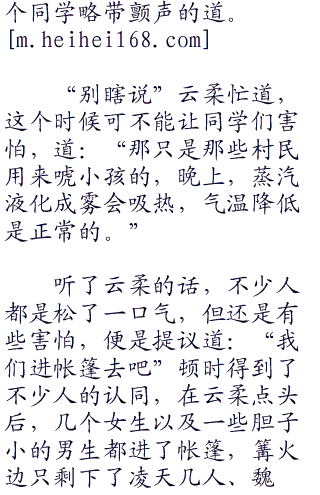 个同学略带颤声的道。
[m.heihei168.com]
“别瞎说”云柔忙道，
这个时候可不能让同学们害
怕，道：“那只是那些村民
用来唬小孩的，晚上，蒸汽
液化成雾会吸热，气温降低
是正常的。”
听了云柔的话，不少人
都是松了一口气，但还是有
些害怕，便是提议道：“我
们进帐篷去吧”顿时得到了
不少人的认同，在云柔点头
后，几个女生以及一些胆子
小的男生都进了帐篷，篝火
边只剩下了凌天几人、魏